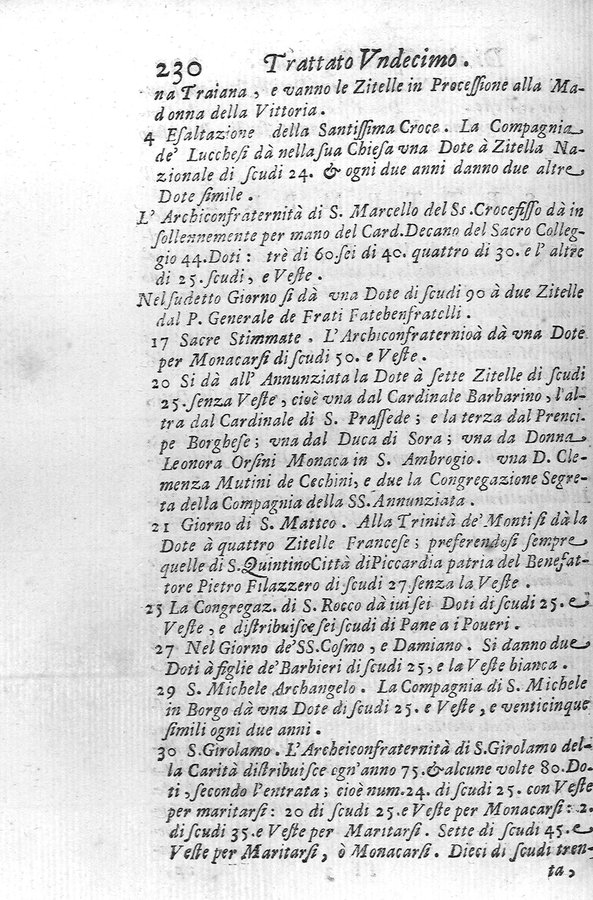 230 Trattato Vndecimo.
na Traiana, e vanno le Zitelle in Processione alla Ma-
donna della Vittoria.
4 Esaltazione della Santissima Croce. La Compagnia
de' Lucchesi dà nella sua Chiesa vna Dote à Zitella Na-
zionale di scudi 24. & ogni due anni danno due altre
Dote simile.
L' Archiconfraternità di S. Marcello del Ss. Crocefisso dà in
sollennemente per mano del Card. Decano del Sacro Colleg-
gio 44. Doti: trè di 60. sei di 40. quattro di 30. e l' altre
di 25. scudi, e Veste.
Nel sudetto Giorno si dà vna Dote di scudi 90 à due Zitelle
dal P. Generale de Frati Fatebenfratelli.
17 Sacre Stimmate. L'Archiconfraternioà dà vna Dote
per Monacarsi di scudi 50. e Veste.
20 Si dà all' Annunziata la Dote à sette Zitelle di scudi
25. senza Veste, cioè vna dal Cardinale Barbarino, l'al-
tra dal Cardinale di S. Prassede; e la terza dal Prenci-
pe Borghese; vna dal Duca di Sora; vna da Donna
Leonora Orsini Monaca in S. Ambrogio. vna D. Cle-
menza Mutini de Cechini, e due la Congregazione Segre-
ta della Compagnia della SS. Annunziata.
21 Giorno di S. Matteo. Alla Trinità de' Monti si dà la
Dote à quattro Zitelle Francese; preferendosi sempre
quelle di S. Quintino Città di Piccardia patria del Benefat-
tore Pietro Filazzero di scudi 27 senza la Veste.
25 La Congregaz. di S. Rocco dà iui sei Doti di scudi 25. e
Veste, e distribuisce sei scudi di Pane a i Poueri.
27 Nel Giorno de' SS. Cosmo, e Damiano. Si danno due
Doti à figlie de' Barbieri di scudi 25, e la Veste bianca.
29 S. Michele Archangelo. La Compagnia di S. Michele
in Borgo dà vna Dote di scudi 25. e Veste, e venticinque
simili ogni due anni.
30 S. Girolamo. L'Archeiconfraternità di S. Girolamo del-
la Carità distribuisce ogn'anno 75. & alcune volte 80. Do-
ti, secondo l'entrata; cioè num. 24. di scudi 25. con Veste
per maritarsi: 20 di scudi 25. e Veste per Monacarsi: 2.
di scudi 35. e Veste per Maritarsi. Sette di scudi 45. e
Veste per Maritarsi, ò Monacarsi. Dieci di scudi tren-
ta,